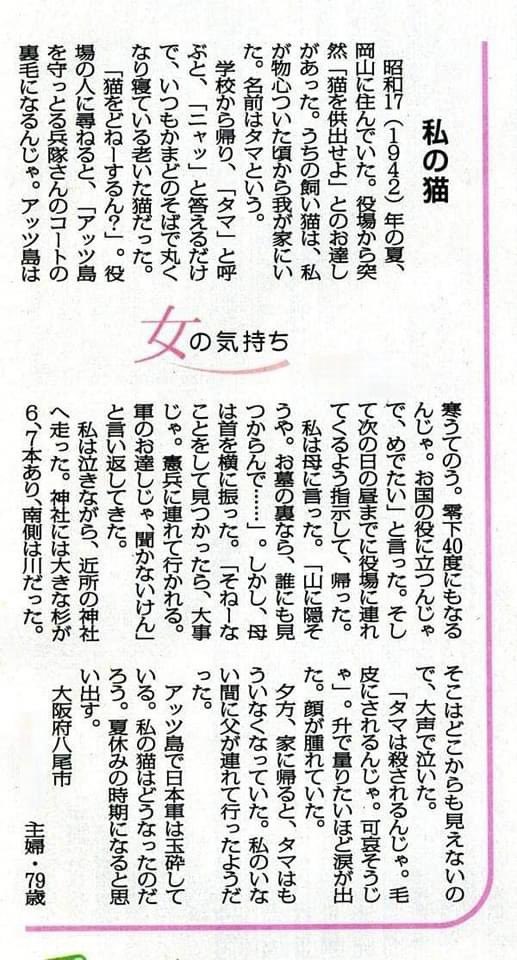 私の猫
昭和17(1942)年の夏、
岡山に住んでいた。役場から突
然「猫を供出せよ」とのお達し
があった。うちの飼い猫は、私
が物心ついた頃から我が家にい
た。名前はタマという。
学校から帰り、「タマ」と呼
ぶと、「ニャッ」と答えるだけ
で、いつもかまどのそばで丸く
なり寝ている老いた猫だった。
「猫をどねーするん?」。役
場の人に尋ねると、「アッツ島
を守っとる兵隊さんのコートの
裏毛になるんじゃ。アッツ島は
女の気持ち
寒うてのう。零下40度にもなる
んじゃ。お国の役に立つんじゃ
で、めでたい」と言った。そし
て次の日の昼までに役場に連れ
てくるよう指示して、帰った。
私は母に言った。「山に隠そ
うや。お墓の裏なら、誰にも見
つからんで……」。しかし、母
は首を横に振った。「そねーな
ことをして見つかったら、大事
じゃ。憲兵に連れて行かれる。
軍のお達しじゃ、聞かないけん」
と言い返してきた。
私は泣きながら、近所の神社
へ走った。神社には大きな杉が
6、7本あり、南側は川だった。
そこはどこからも見えないの
で、大声で泣いた。
「タマは殺されるんじゃ。毛
皮にされるんじゃ。可哀そうじ
ゃ」。升で量りたいほど涙が出
た。顔が腫れていた。
夕方、家に帰ると、タマはも
ういなくなっていた。私のいな
い間に父が連れて行ったようだ
った。
アッツ島で日本軍は玉砕して
いる。私の猫はどうなったのだ
ろう。夏休みの時期になると思
い出す。
大阪府八尾市
主婦・79歳